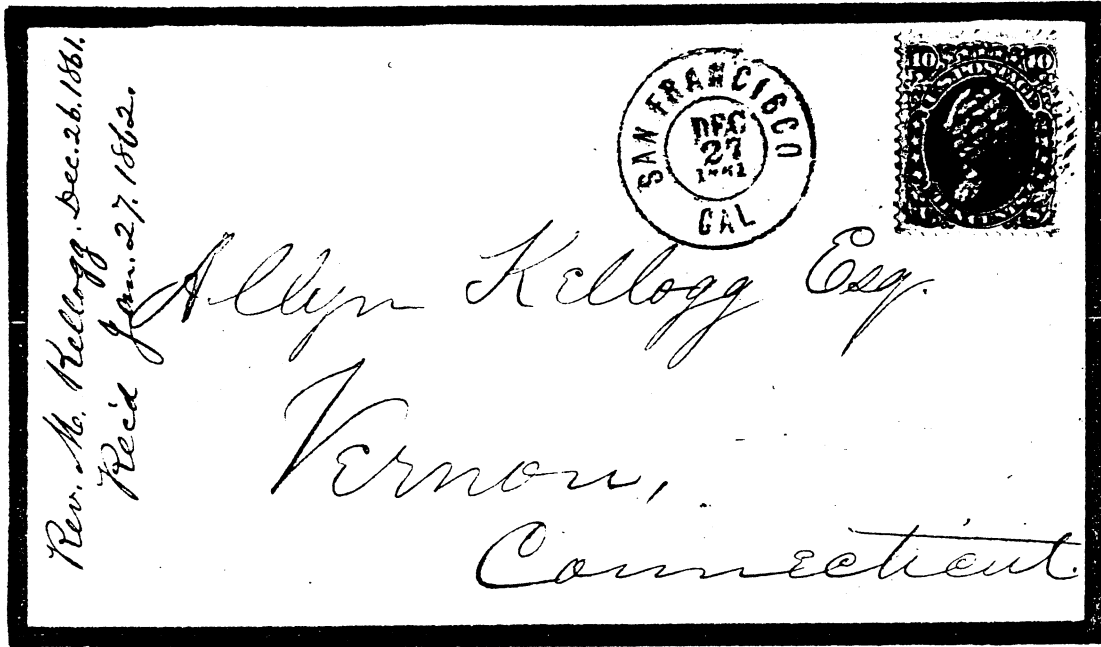 Rev. M. Kellogg. Dec. 26. 1861.
Rec'd Jan. 27. 1862.
SAN FRANCISCO
DEC
27
1861
CAL
10 10
Allyn Kellogg Esq.
Vernon,
Connecticut.